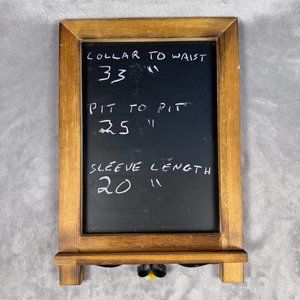 COLLAR TO WAIST
33 "
PIT TO PIT
25 "
SLEEVE LENGTH
20 "